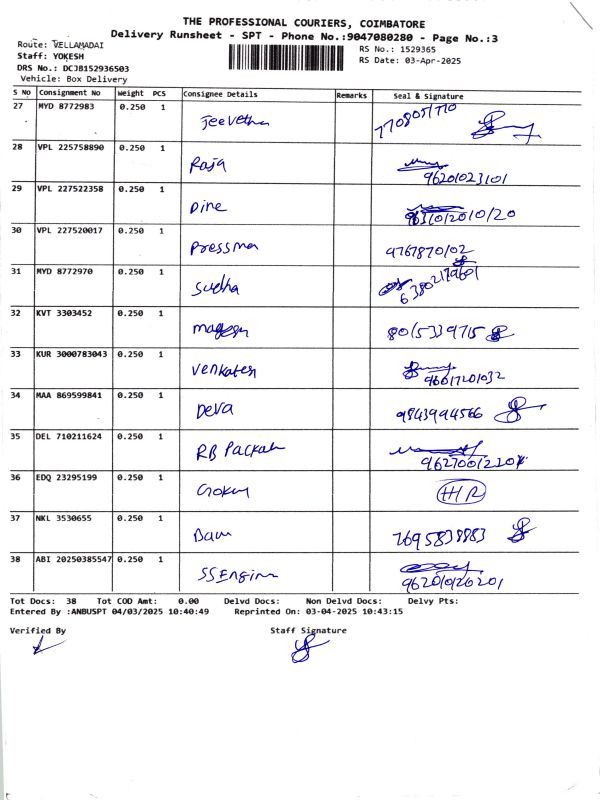 THE PROFESSIONAL COURIERS, COIMBATORE
Delivery Runsheet - SPT - Phone No.:9047080280 - Page No.:3
Route: VELLAMADAI
Staff: YOKESH
DRS No.: DCJB152936503
Vehicle: Box Delivery
RS No.: 1529365
RS Date: 03-Apr-2025
S No Consignment No Weight PCS Consignee Details Remarks Seal & Signature
27 MYD 8772983 0.250 1 Jeevetha 770805/770
28 VPL 225758890 0.250 1 Raja 96201023101
29 VPL 227522358 0.250 1 Dine
30 VPL 227520017 0.250 1 Pressman 9767870102
31 MYD 8772970 0.250 1 Sudha 63802179601
32 KVT 3303452 0.250 1 Magesh 8015339715
33 KUR 3000783043 0.250 1 Venkatesh 96017201032
34 MAA 869599841 0.250 1 Deva 9843994566
35 DEL 710211624 0.250 1 RB
36 EDQ 23295199 0.250 1 Gokul
37 NKL 3530655 0.250 1 7695838883
38 ABI 20250385547 0.250 1 SS Engine 9620102 0201
Tot Docs: 38 Tot COD Amt: 0.00 Delvd Docs: Non Delvd Docs: Delvy Pts:
Entered By :ANBUSPT 04/03/2025 10:40:49 Reprinted On: 03-04-2025 10:43:15
Verified By Staff Signature